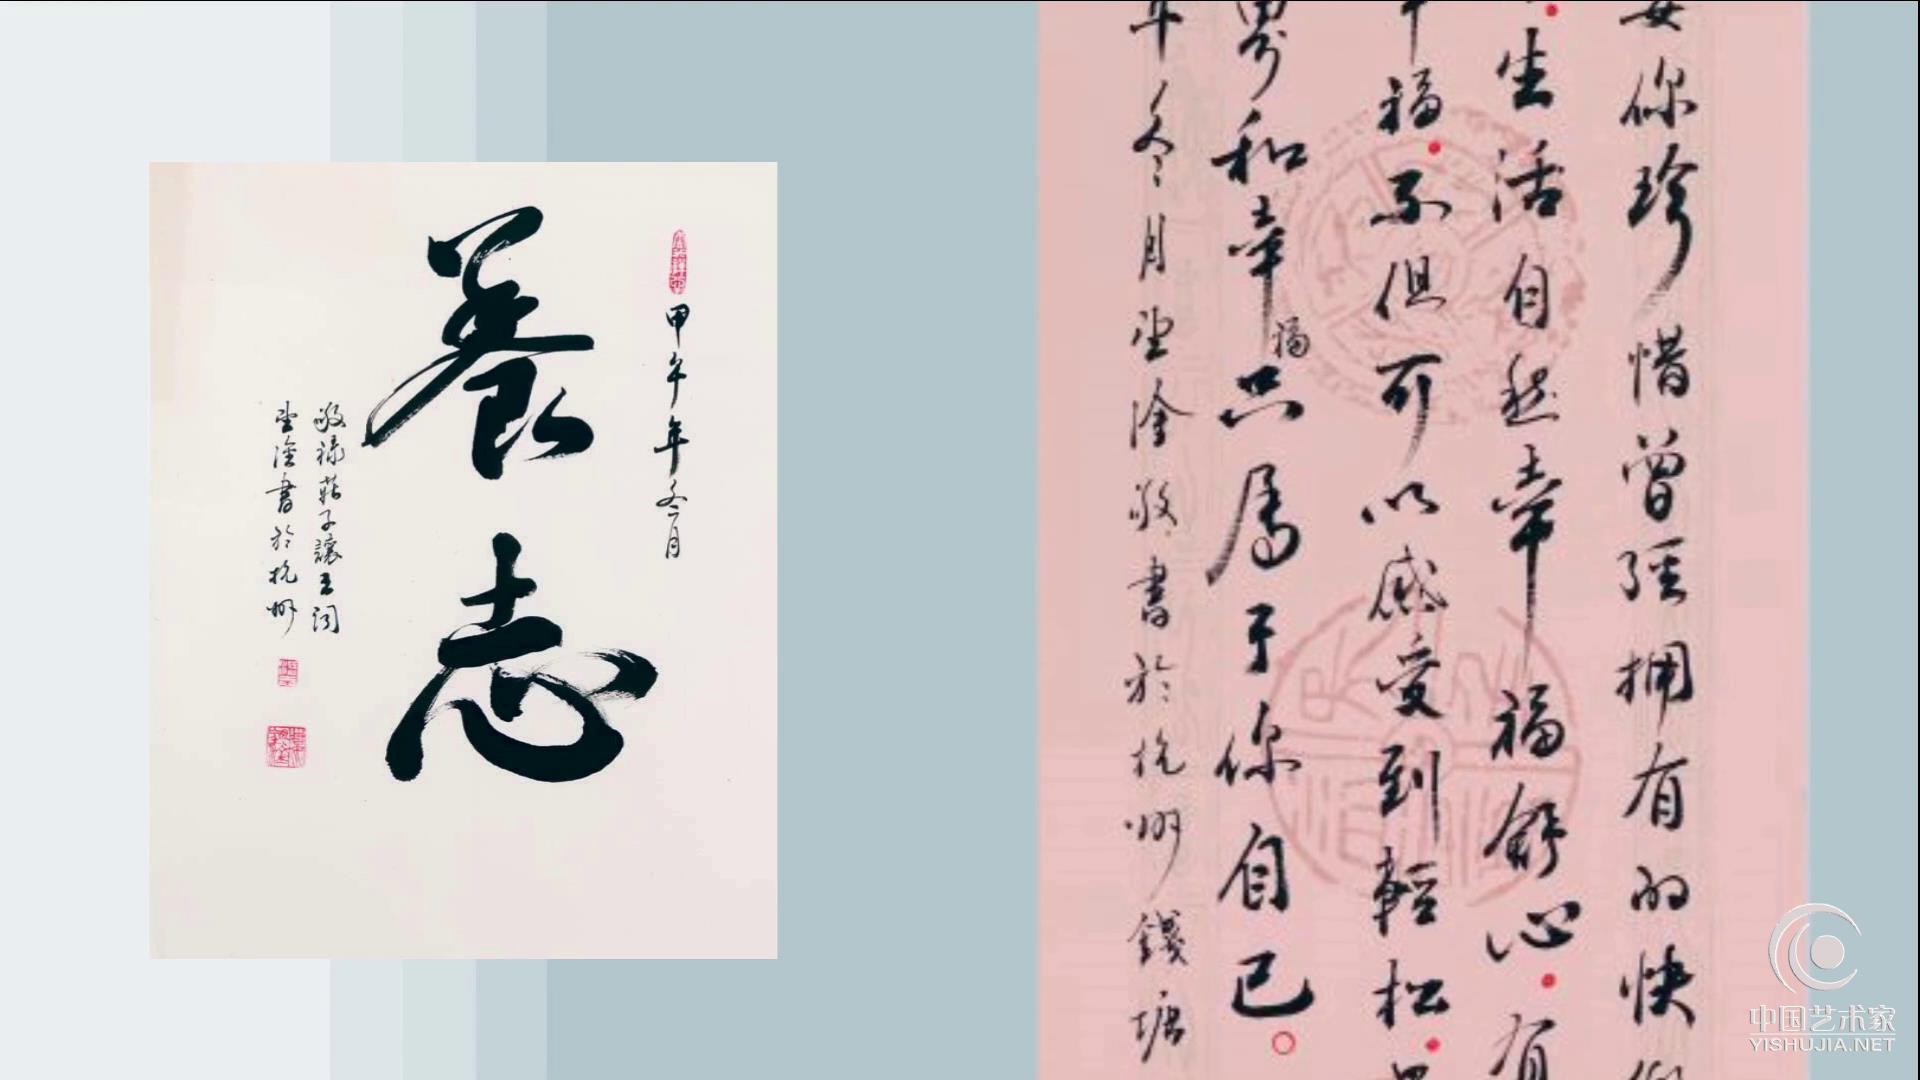 養志
甲午年冬月
敬禄莊子讓王词
書於杭州
安你珍惜曾經拥有的快
生活自然幸福舒心有
福不但可以感受到輕松
界和幸福只属于你自己
年冬月
敬書於杭州錢塘
中国艺术家
YISHUJIA.NET